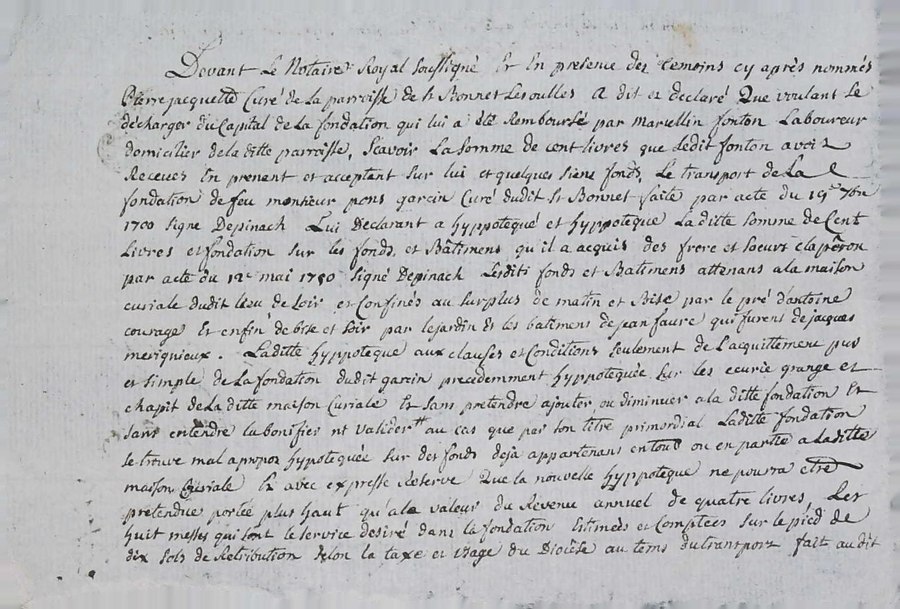 Devant Le Notaire Royal Soussigné Et En presence des temoins cy après nommés
Pierre jacquette Curé de La parroisse de St Bonnet Lesoulles A dit et declaré Que voulant Se
décharger du Capital de La fondation qui lui a été Remboursé par Marcellin fonton Laboureur
domicilier de la ditte parroisse, Scavoir La Somme de cent livres que Ledit fonton avoit
Receues En prenent et acceptent sur lui et quelques siens fonds, Le transport de La
fondation de feu monsieur pons garcin Curé dudit St Bonnet faite par acte du 19e
1700 signé Depinach Lui Declarant a hyppotequé et hyppoteque La ditte somme de Cent
Livres et fondation sur les fonds et Batimens qu'il a acquis des frere et soeurs
par acte du 12e mai 1780 signé Depinach Lesdits fonds et Batimens attenans a la maison
curiale dudit Lieu de Soir et Confinés au surplus de matin et Bise par le pré d'antoine
courage Et enfin de bise et soir par le jardin Et les batimens de jean faure qui furens de jacques
merignieux. Laditte hyppoteque aux clauses et Conditions seulement de L'acquittement pur
et simple de La fondation dudit garcin precedemment hyppotequée sur les ecurie grange et
chapit de La ditte maison Curiale Et sans pretendre ajouter ou diminuer a la ditte fondation Et
sans entendre la bonifier ni valider au cas que par son titre primordial Laditte fondation
se trouve mal apropos hypotequée sur des fonds deja appartenans en tout ou en partie a Laditte
maison Curiale Et avec expresse Reserve Que la nouvelle hyppoteque ne pourra etre
pretendue portée plus haut qu'a la valeur du Revenu annuel de quatre livres, Les
huit messes qui sont le service desiré dans la fondation Estimées et Comptees sur le pied de
dix sols de Retribution selon la taxe et usage du Diocèse au tems du transport fait audit